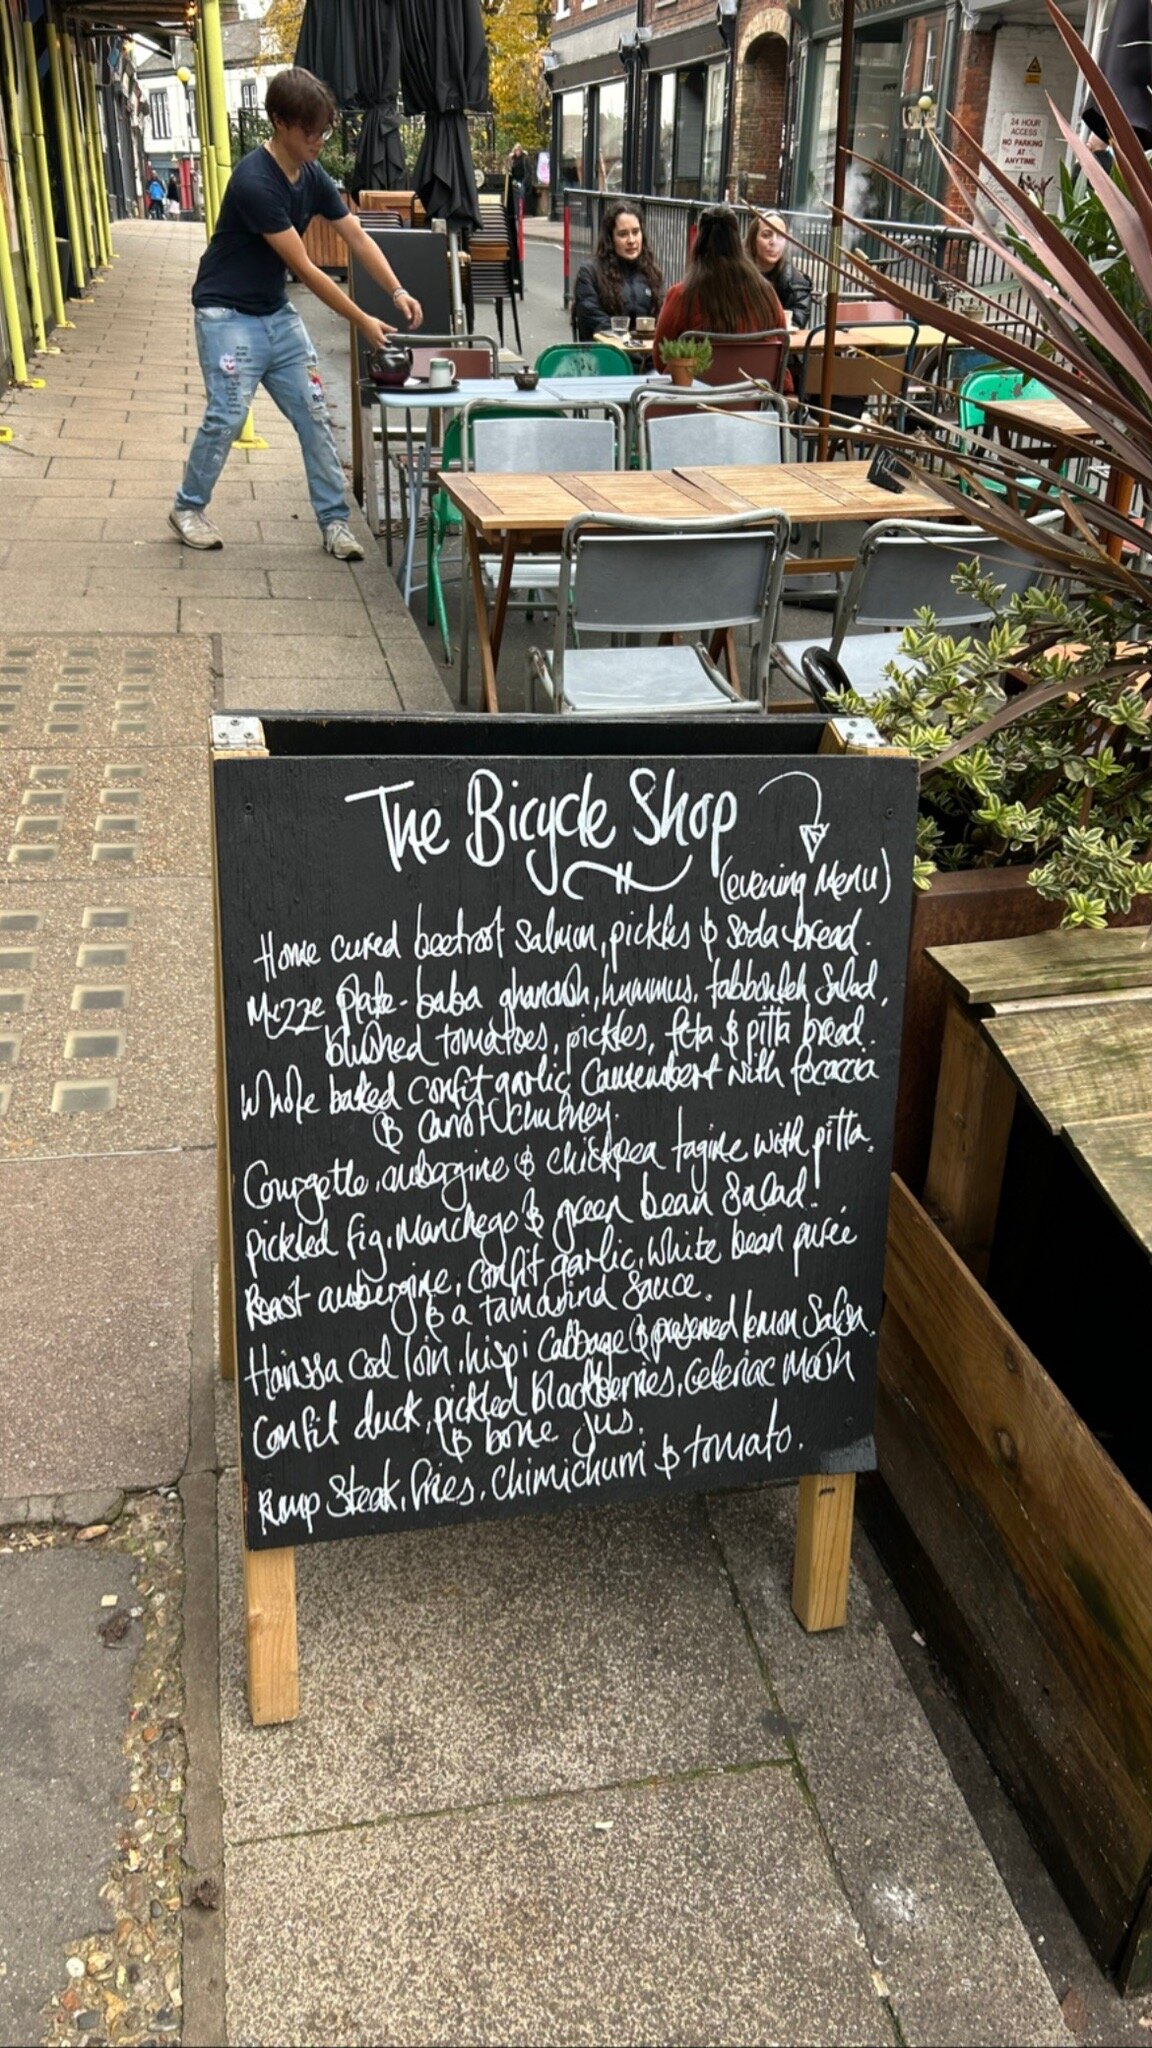 The Bicycle Shop
(evening Menu)
Home cured beetroot Salmon, pickles & Soda-bread.
Mezze plate - baba ghanoush, hummus, tabbouleh Salad,
blushed tomatoes, pickles, feta & pitta bread.
Whole baked confit garlic Camembert with focaccia
& Carrot Chutney.
Courgette, aubergine & chickpea tagine with pitta.
pickled fig, Manchego & green bean Salad.
Roast aubergine, confit garlic, white bean purée
& a tamarind Sauce.
Harissa Cod loin, hispi Cabbage & preserved lemon Salsa.
Confit duck, pickled blackberries, Celeriac Mash
& bone Jus.
Rump Steak, fries, Chimichurri & tomato.
24 HOUR
ACCESS
NO PARKING
AT
ANYTIME